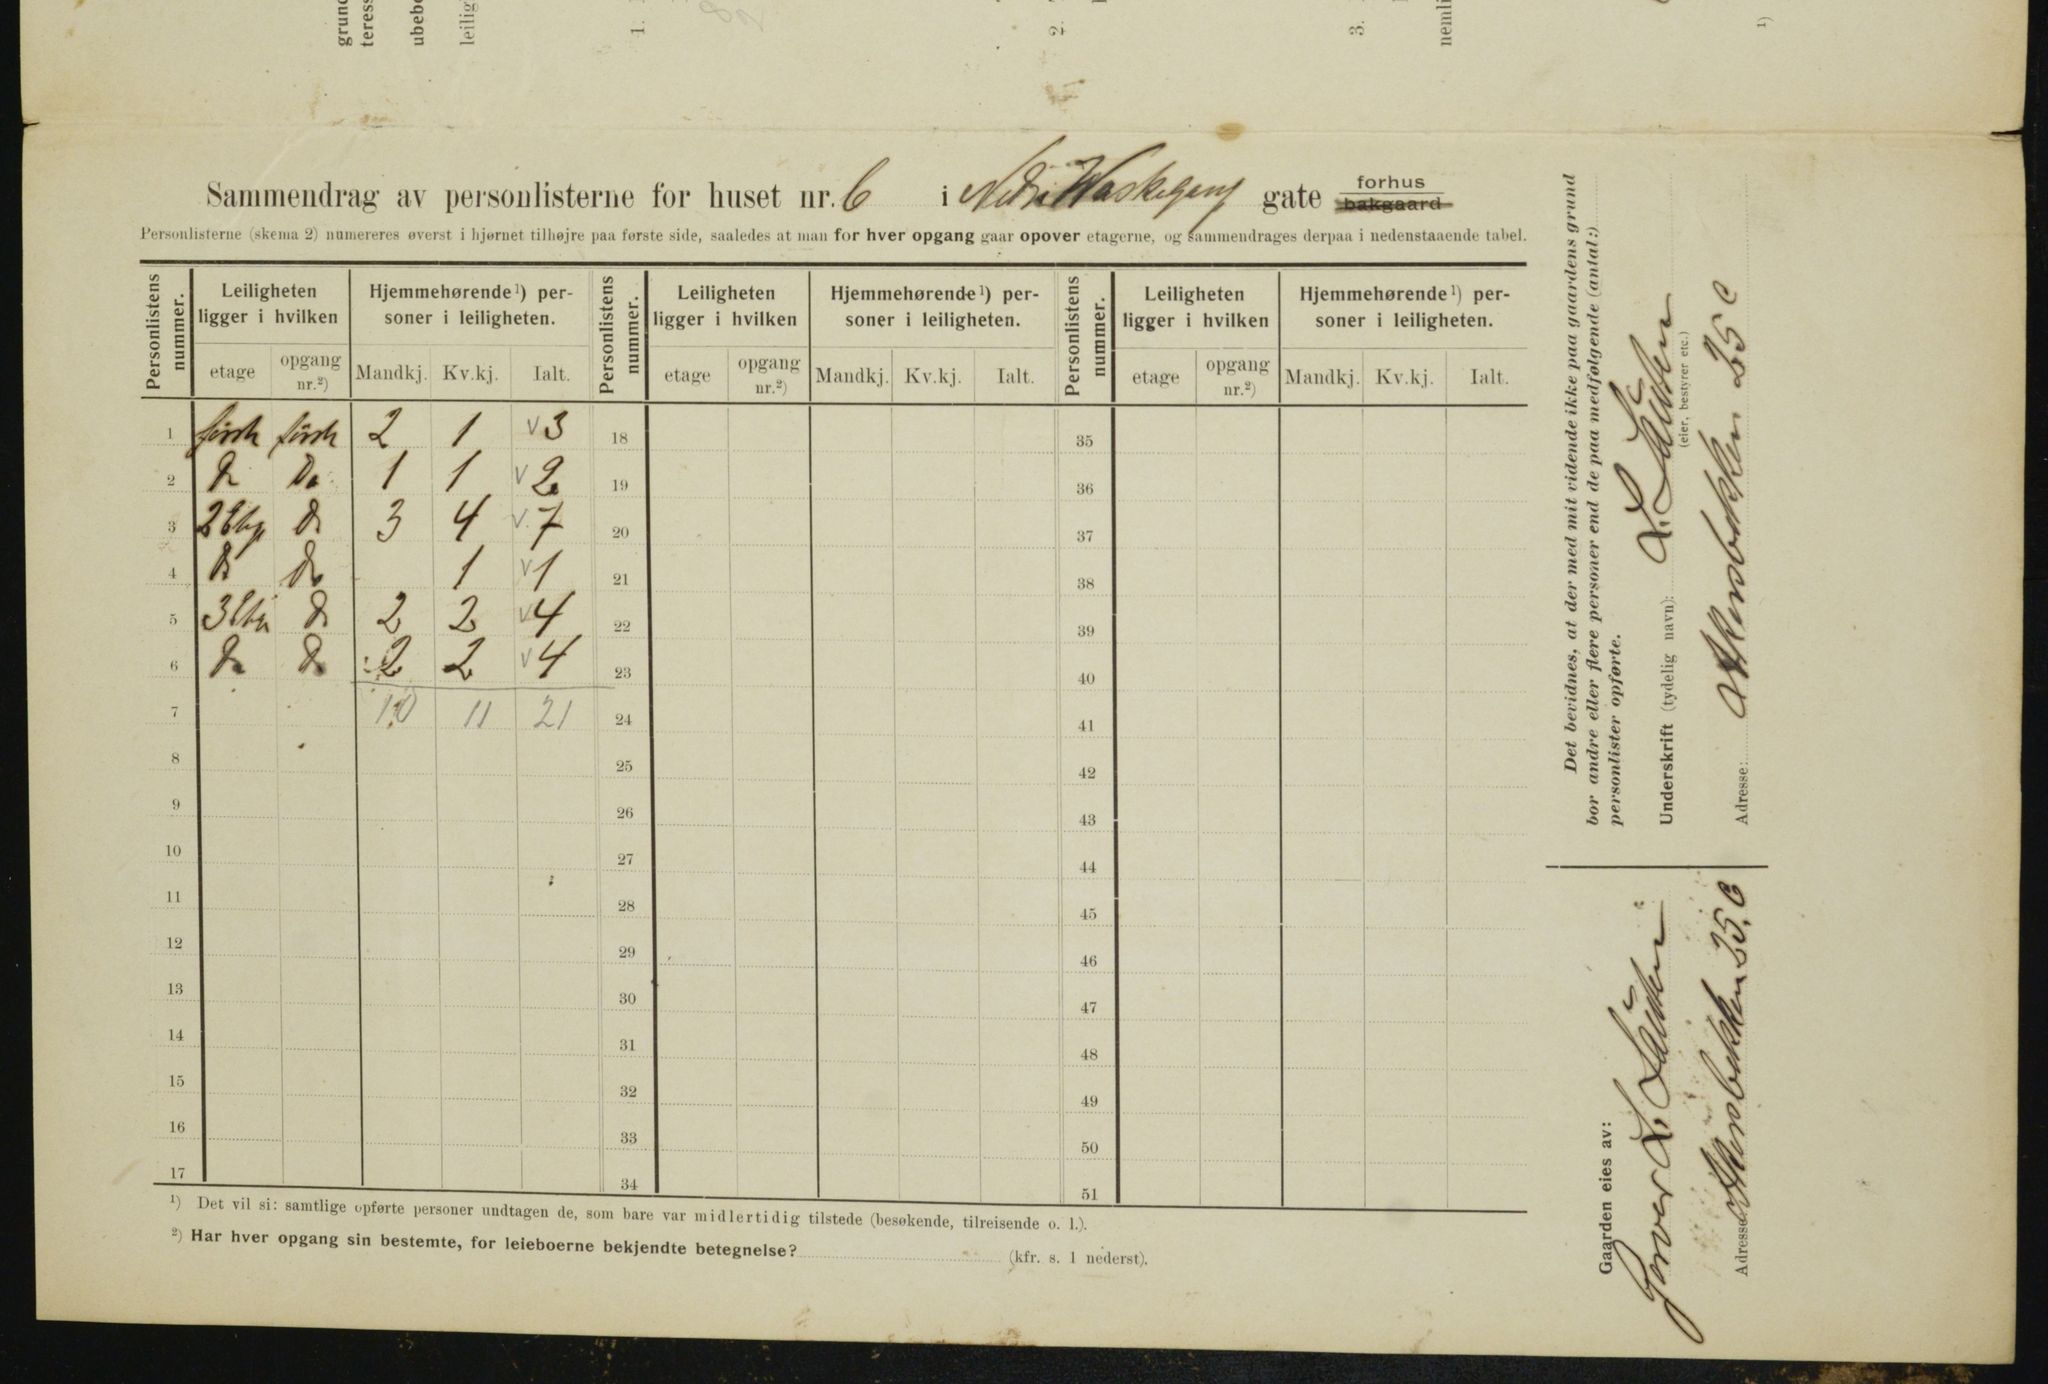 grund
teress
ubebo
leilig
1.
2.
3.
nemli
1)
Sammendrag av personlisterne for huset nr. 6 i Nedre Waskegang gate forhus bakgaard
Personlisterne (skema 2) numereres øverst i hjørnet tilhøjre paa første side, saaledes at man for hver opgang gaar opover etagerne, og sammendrages derpaa i nedenstaaende tabel.
Personlistens nummer. Leiligheten ligger i hvilken Hjemmehørende 1) personer i leiligheten. Personlistens nummer. Leiligheten ligger i hvilken Hjemmehørende 1) personer i leiligheten. Personlistens nummer. Leiligheten ligger i hvilken Hjemmehørende 1) personer i leiligheten.
etage opgang nr.2) Mandkj. Kv.kj. Ialt. etage opgang nr.2) Mandkj. Kv.kj. Ialt. etage opgang nr.2) Mandkj. Kv.kj. Ialt.
1 første første 2 1 v 3 18 35
2 Do Do 1 1 v 2 19 36
3 2 Etg. Do 3 4 v 7 20 37
4 Do Do 1 v 1 21 38
5 3 Etg Do 2 2 v 4 22 39
6 Do Do 2 2 v 4 23 40
7 10 11 21 24 41
8 25 42
9 26 43
10 27 44
11 28 45
12 29 46
13 30 47
14 31 48
15 32 49
16 33 50
17 34 51
1) Det vil si: samtlige opførte personer undtagen de, som bare var midlertidig tilstede (besøkende, tilreisende o. l.).
2) Har hver opgang sin bestemte, for leieboerne bekjendte betegnelse? (kfr. s. 1 nederst).
Det bevidnes, at der med mit vidende ikke paa gaardens grund
bor andre eller flere personer end de paa medfølgende (antal:)
personlister opførte.
Underskrift (tydelig navn):
(eier, bestyrer etc.)
Adresse: Akersbakken 25 C
Gaarden eies av:
Garver
Adresse Akersbakken 25 C